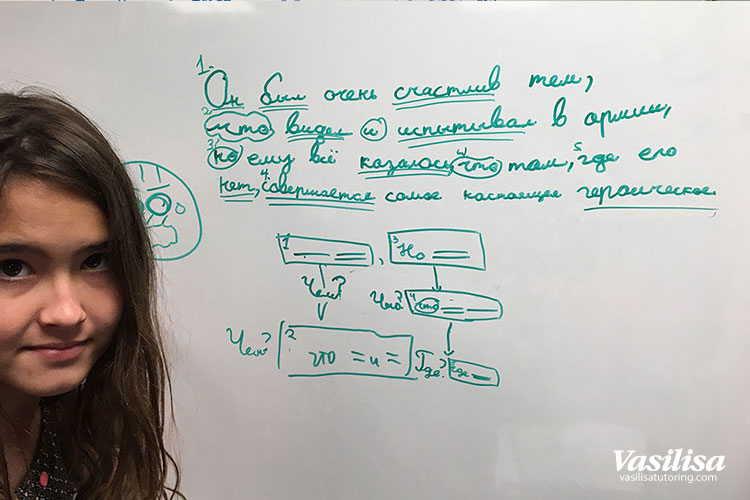 1.
Он был очень счастлив тем,
2 что видел и испытывал в армии,
3 но ему всё казалось, 4 что там, 5. где его
нет, 4. совершается самое настоящее героическое.
1 , 3 Но
Чем? Что? 4 что
Чем? 2 что = и = Где? где
Vasilisa
vasilisatutoring.com